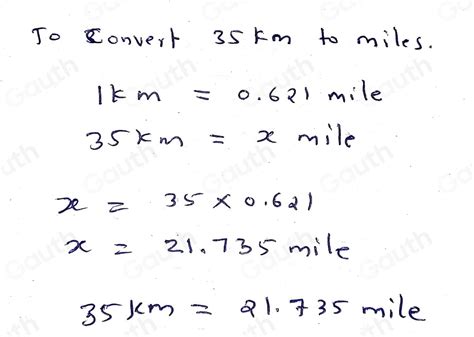 To Convert 35 km to miles.
1 km = 0.621 mile
35 km = x mile
x = 35 × 0.621
x = 21.735 mile
35 km = 21.735 mile